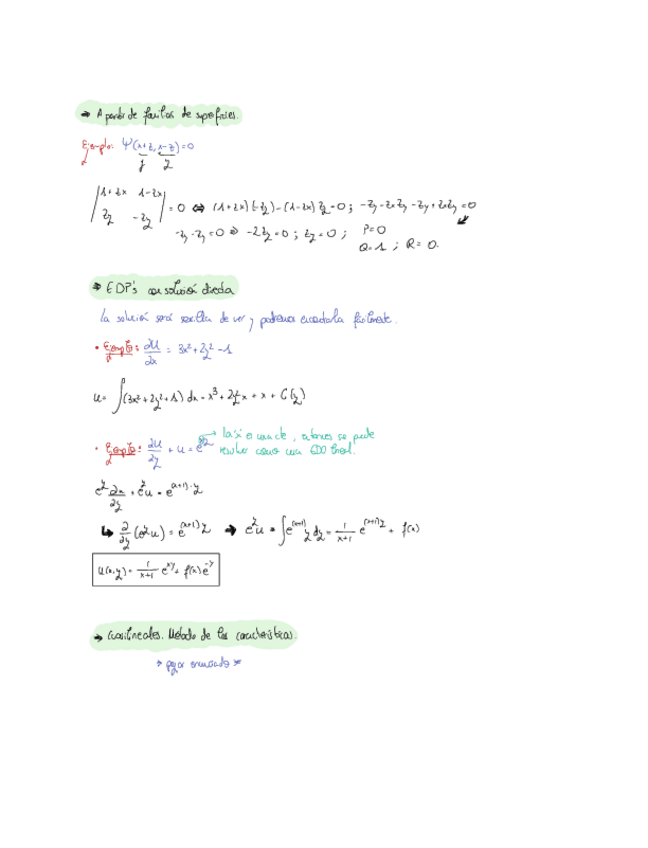 → A partir de familias de superficies.
Ejemplo: Ψ(x+z, x-z)=0
|1+zx 1-zx|
|zy -zy| = 0 ⇔ (1+zx)(-zy)-(1-zx)zy=0; -zy-zxzy-zy+zxzy=0
-zy-zy=0 ⇒ -2zy=0; zy=0; P=0
Q=1; R=0.
→ EDP's con solución directa
La solución será sencilla de ver y podremos encontrarla fácilmente.
• Ejemplo: ∂u/∂x = 3x²+2y²-1
u= ∫(3x²+2y²+1) dx = x³ + 2y²x + x + C(y)
• Ejemplo: ∂u/∂y + u = e^xy → la x es constante, entonces se puede
resolver como una EDO lineal.
e^y ∂u/∂y + e^y u = e^(x+1)·y
↳ ∂/∂y (e^y u) = e^(x+1)y → e^y u = ∫e^(x+1)y dy = 1/(x+1) e^(x+1)y + f(x)
u(x,y) = 1/(x+1) e^xy + f(x)e^-y
→ Cuasilineales. Método de las características.
* pegar enunciado *